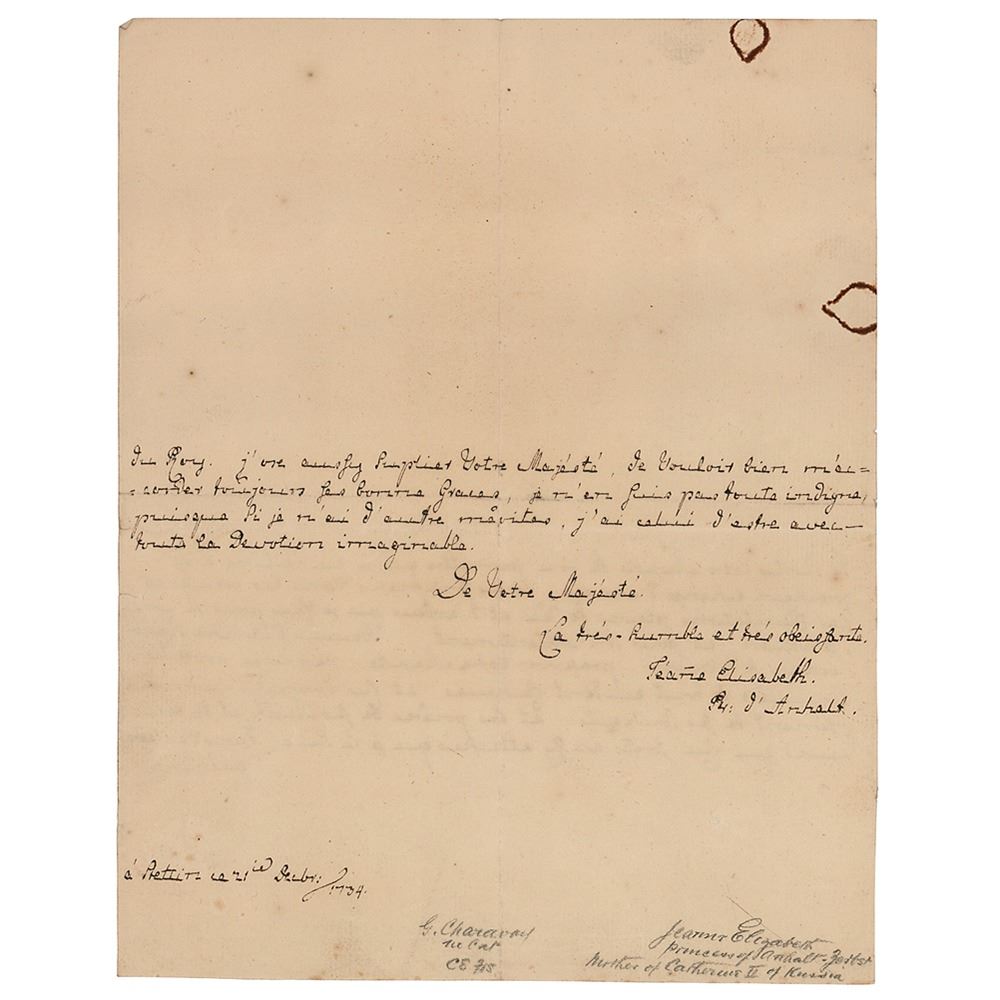 du Roy. j'ose aussy suplier Votre Majésté, de Vouloir bien m'ac=
=corder toujours ses bonne Graces, je n'en suis pas toute indigne,
puisque si je n'ai d'autre mérites, j'ai celui d'estre avec
toute la Devotion imaginable.
De Votre Majésté.
La trés-humble et trés obeissante.
Jeañe Elisabeth.
Pr: d'Anhalt.
á Stettin ce 21ie Decbr: 1734.
G. Charavay
CE
Jeanne Elizabeth
princess of Anhalt-Zerbst
Mother of Catherine II of Russia